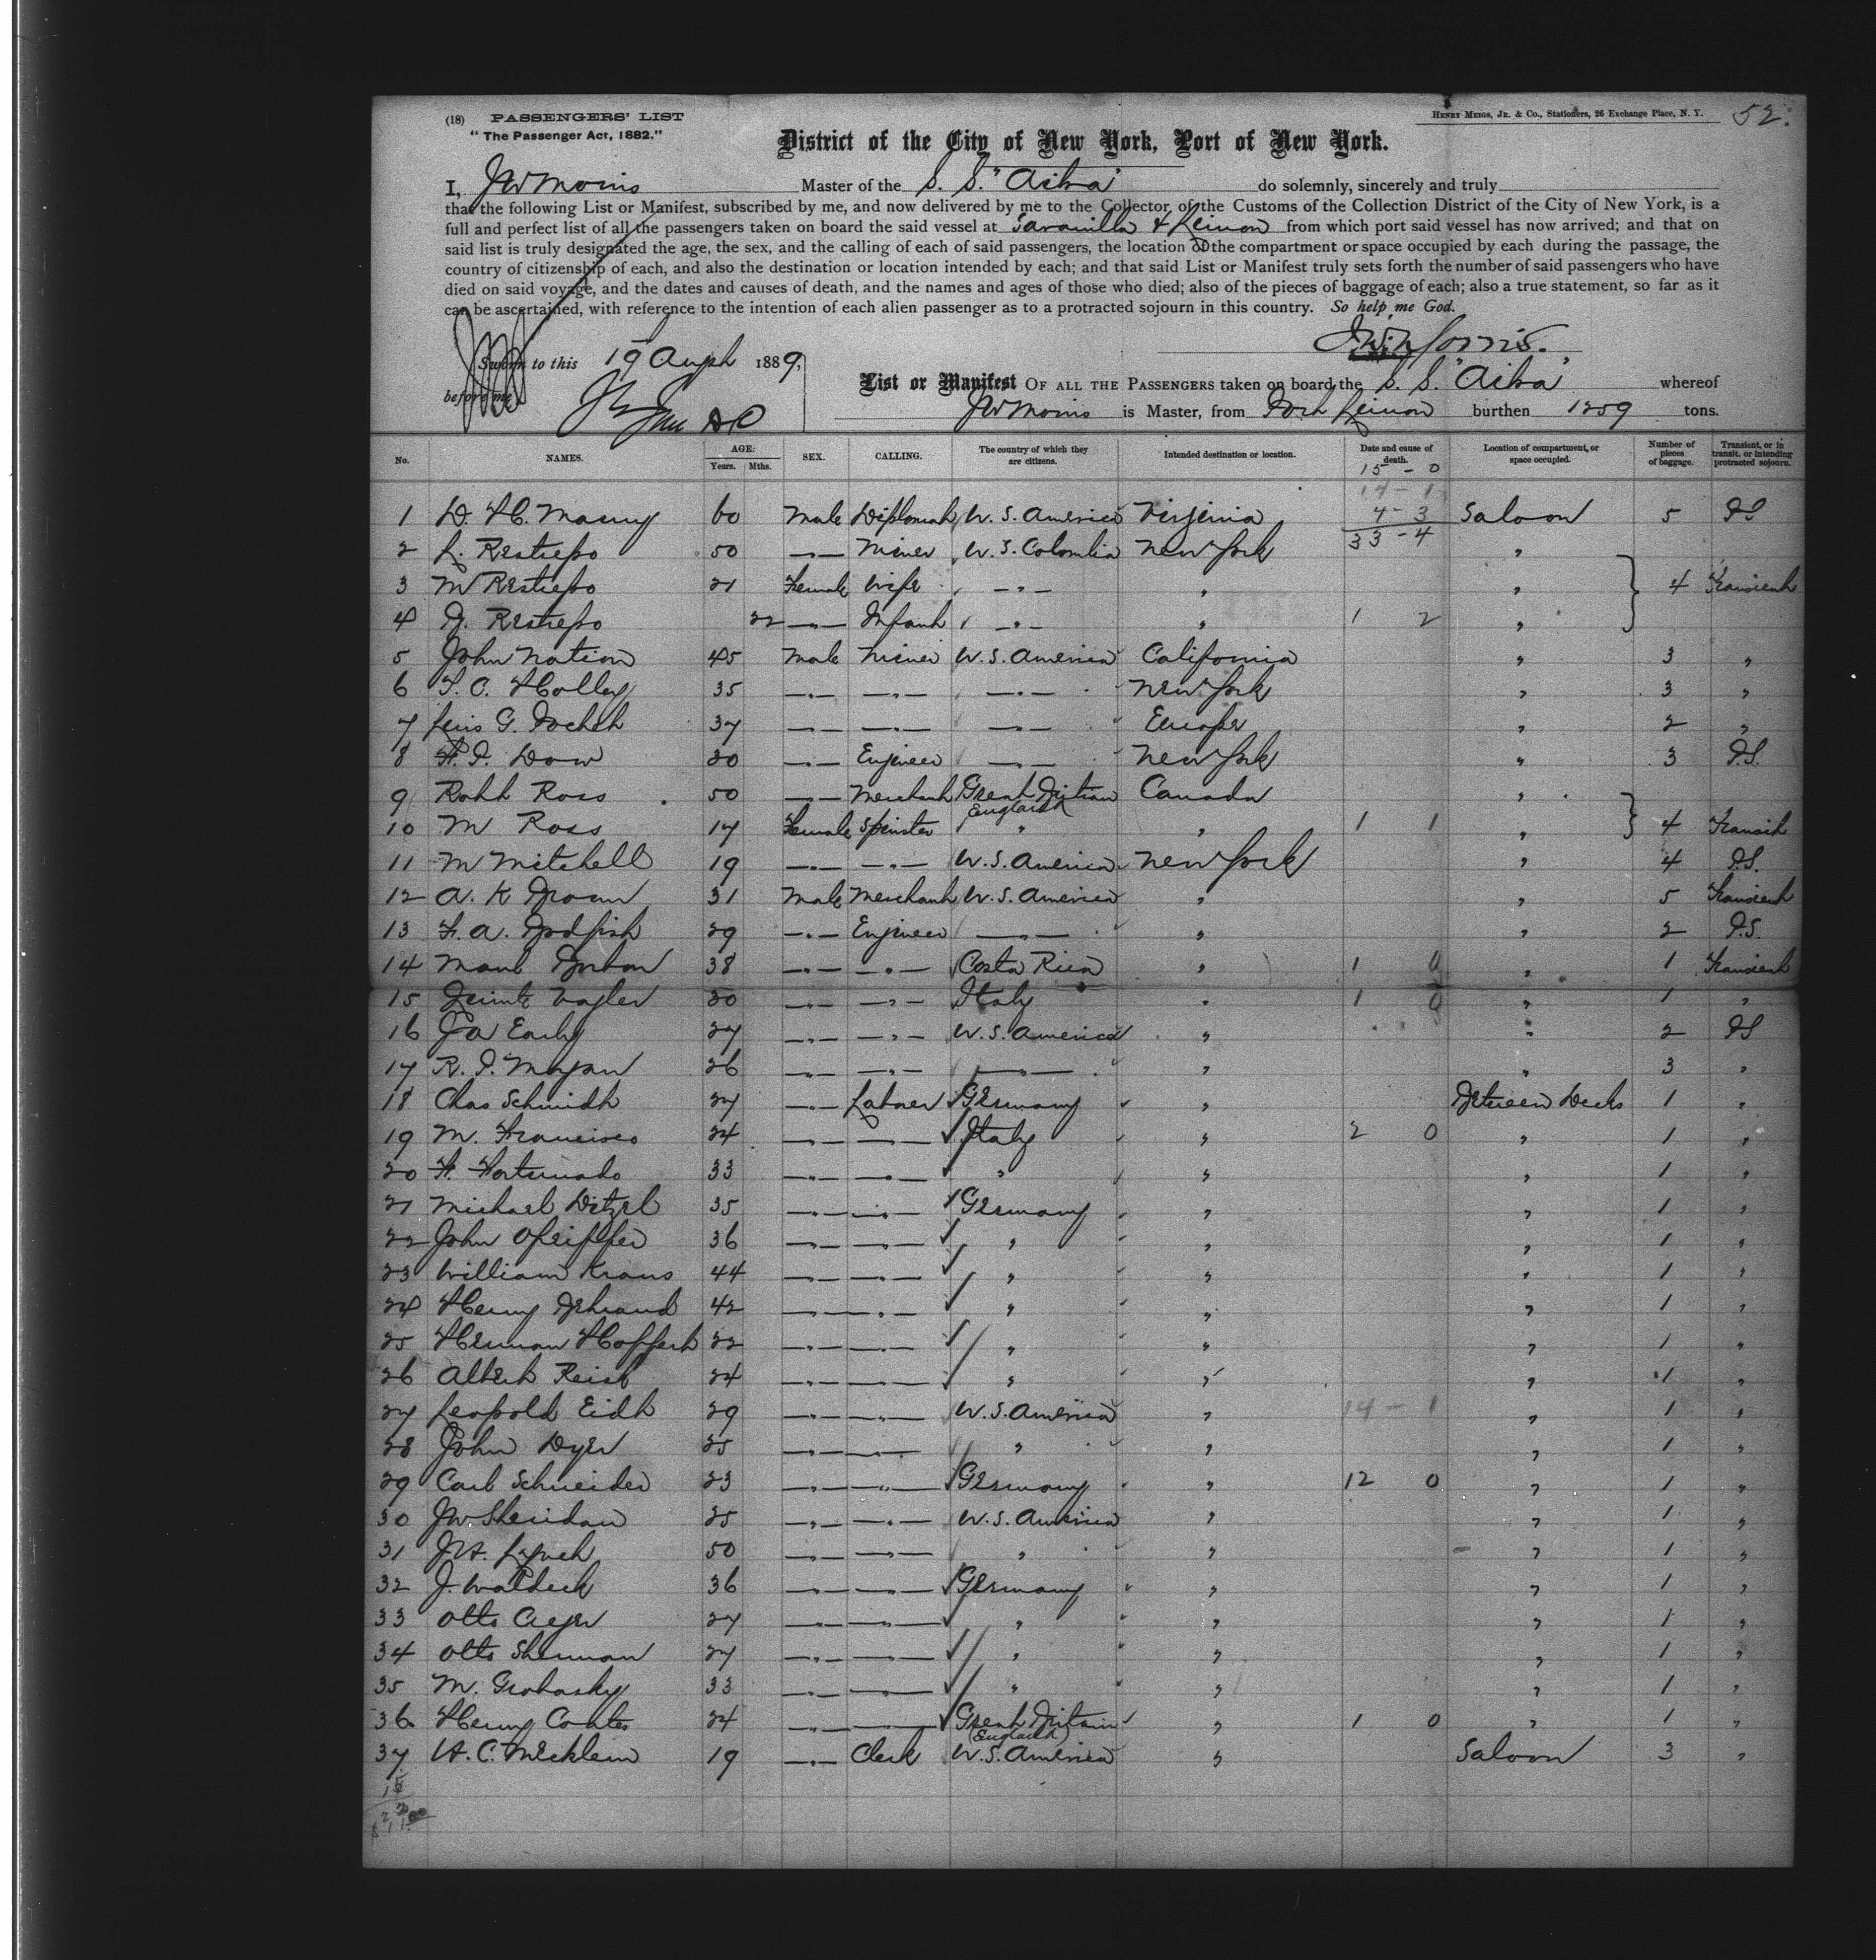 (18) PASSENGERS' LIST
"The Passenger Act, 1882."
HENRY MEIGS, JR. & CO., Stationers, 26 Exchange Place, N. Y.
52.
District of the City of New York, Port of New York.
I, JW Morris Master of the S. S. "Ailsa" do solemnly, sincerely and truly
that the following List or Manifest, subscribed by me, and now delivered by me to the Collector of the Customs of the Collection District of the City of New York, is a
full and perfect list of all the passengers taken on board the said vessel at Savanilla & Limon from which port said vessel has now arrived; and that on
said list is truly designated the age, the sex, and the calling of each of said passengers, the location of the compartment or space occupied by each during the passage, the
country of citizenship of each, and also the destination or location intended by each; and that said List or Manifest truly sets forth the number of said passengers who have
died on said voyage, and the dates and causes of death, and the names and ages of those who died; also of the pieces of baggage of each; also a true statement, so far as it
can be ascertained, with reference to the intention of each alien passenger as to a protracted sojourn in this country. So help me God.
J.W. Morris.
Sworn to this 19 Augst 1889,
before me
List or Manifest OF ALL THE PASSENGERS taken on board the S. S. "Ailsa" whereof
JW Morris is Master, from Port Limon burthen 1259 tons.
No. NAMES. AGE: Years. Mths. SEX. CALLING. The country of which they are citizens. Intended destination or location. Date and cause of death. Location of compartment, or space occupied. Number of pieces of baggage. Transient, or in transit, or intending protracted sojourn.
15 - 0
14 - 1
4 - 3
33 - 4
1 D. H. Maury 60 Male Diplomat U. S. America Virginia Saloon 5 PS
2 L. Restrepo 50 —"— Miner U. S. Colombia New York "
3 M Restrepo 21 Female Wife —"— " " 4 Transient
4 B. Restrepo 22 —"— Infant —"— " 1 2 "
5 John Nation 45 Male Miner U. S. America California " 3 "
6 T. C. Holley 35 —"— —"— —"— New York " 3 "
7 Luis G. Pochet 37 —"— —"— —"— Europe " 2 "
8 F. P. Dow 30 —"— Engineer —"— New York " 3 P.S.
9 Robt Ross 50 —"— Merchant Great Britain England Canada "
10 M Ross 17 Female Spinster " " 1 1 " 4 Transit
11 M Mitchell 19 —"— —"— U. S. America New York " 4 P.S.
12 A. K Brown 31 Male Merchant U. S. America " " 5 Transient
13 F. A. Bodfish 29 —"— Engineer —"— " " 2 P.S.
14 Manl 38 —"— —"— Costa Rica " 1 0 " 1 Transient
15 30 —"— —"— Italy " 1 0 " 1 "
16 JA Early 27 —"— —"— U. S. America " " 2 PS
17 R. P. Morgan 26 —"— —"— —"— " " 3 "
18 Chas Schmidt 27 —"— Laborer Germany " Between Decks 1 "
19 M. Francisco 24 —"— —"— Italy " 2 0 " 1 "
20 F. Fortunado 33 —"— —"— " " " 1 "
21 Michael Ditzel 35 —"— —"— Germany " " 1 "
22 John Pfeiffer 36 —"— —"— " " " 1 "
23 William Kraus 44 —"— —"— " " " 1 "
24 Henry Gebrand 42 —"— —"— " " " 1 "
25 Herman Hoffert 22 —"— —"— " " " 1 "
26 Albert Reish 24 —"— —"— " " " 1 "
27 Leopold Eidt 29 —"— —"— U. S. America " 14 - 1 " 1 "
28 John Dyer 25 —"— —"— " " " 1 "
29 Carl Schneider 23 —"— —"— Germany " 12 0 " 1 "
30 JW Sheridan 25 —"— —"— U. S. America " " 1 "
31 J.H. Lynch 50 —"— —"— " " " 1 "
32 J. Waldeck 36 —"— —"— Germany " " 1 "
33 Otto 27 —"— —"— " " " 1 "
34 Otto Sherman 27 —"— —"— " " " 1 "
35 M. Grobasky 33 —"— —"— " " " 1 "
36 Henry Coates 24 —"— —"— Great Britain (England) " 1 0 " 1 "
37 H. C. Mecklem 19 —"— Clerk U. S. America " Saloon 3 "
15